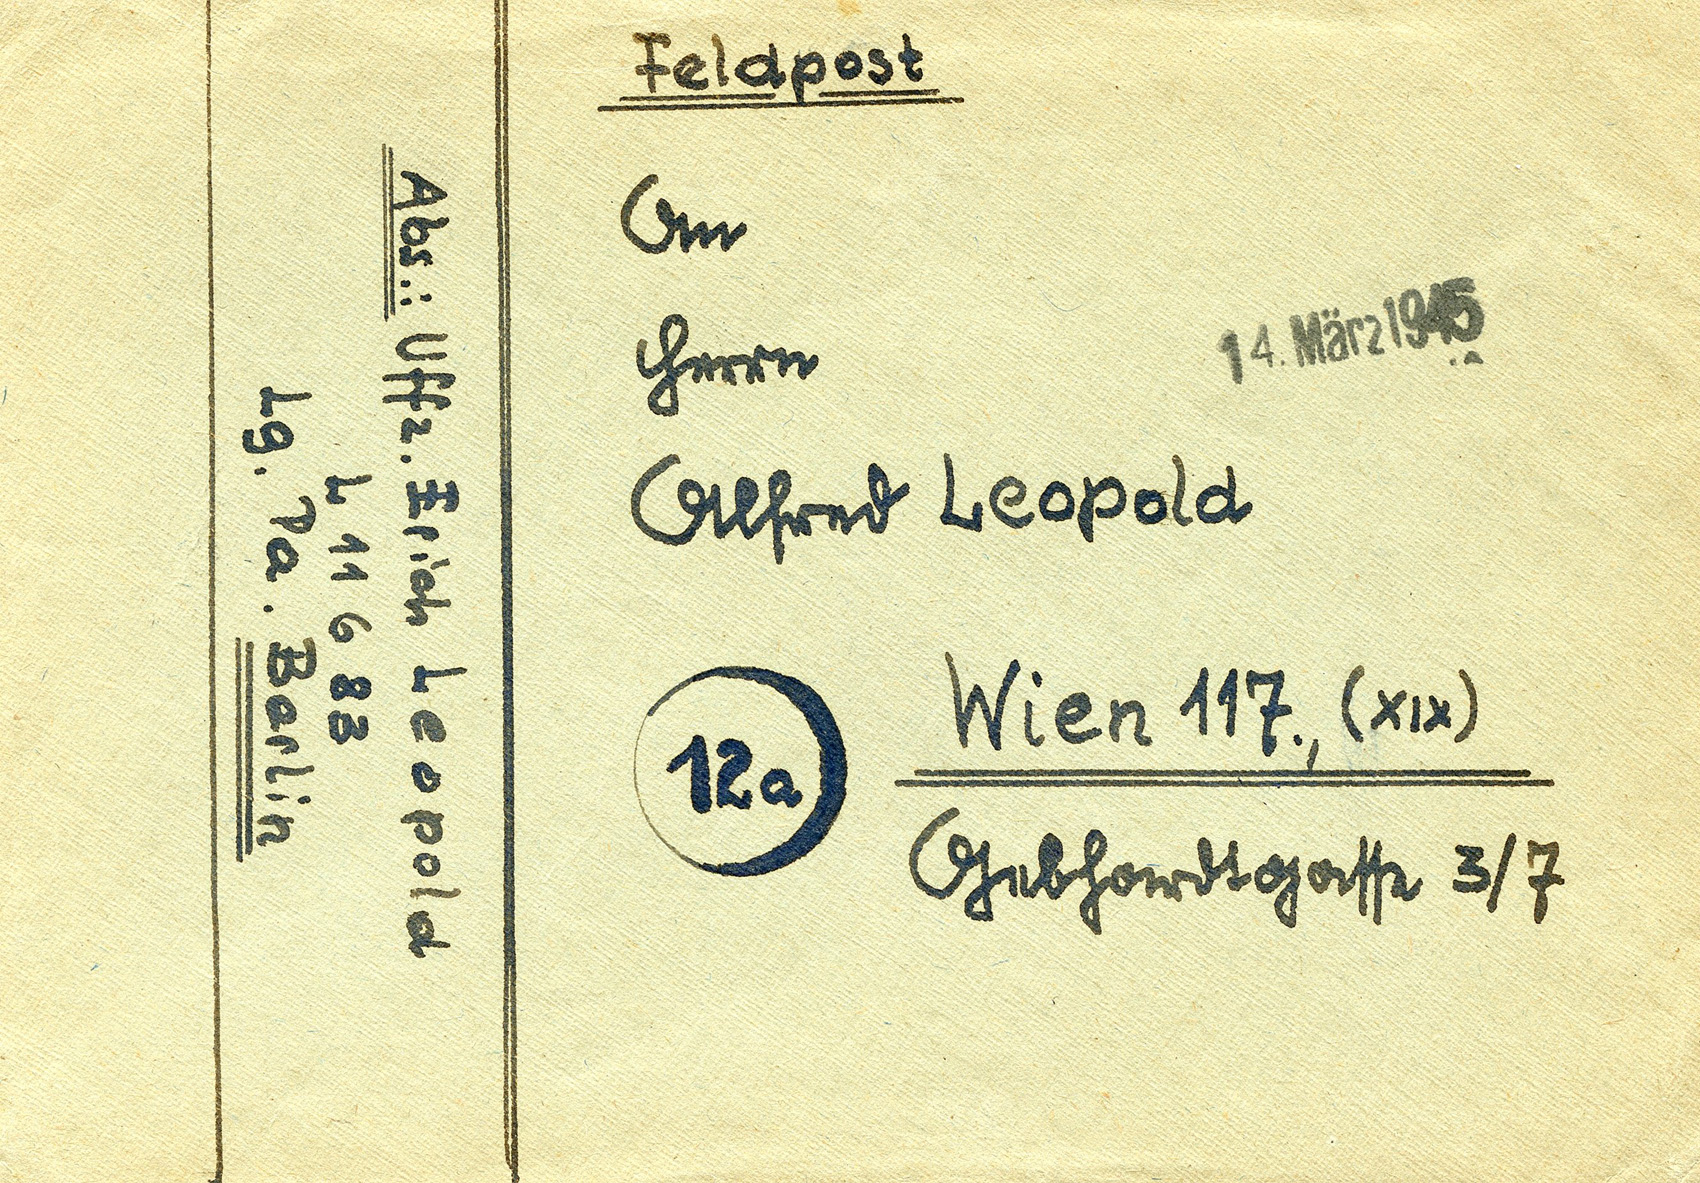 Feldpost
An
Herrn
Alfred Leopold
14. März 1945
12a
Wien 117., (XIX)
Gebhardtgasse 3/7
Abs.: Uffz. Erich Leopold
L 11683
Lg. Pa. Berlin